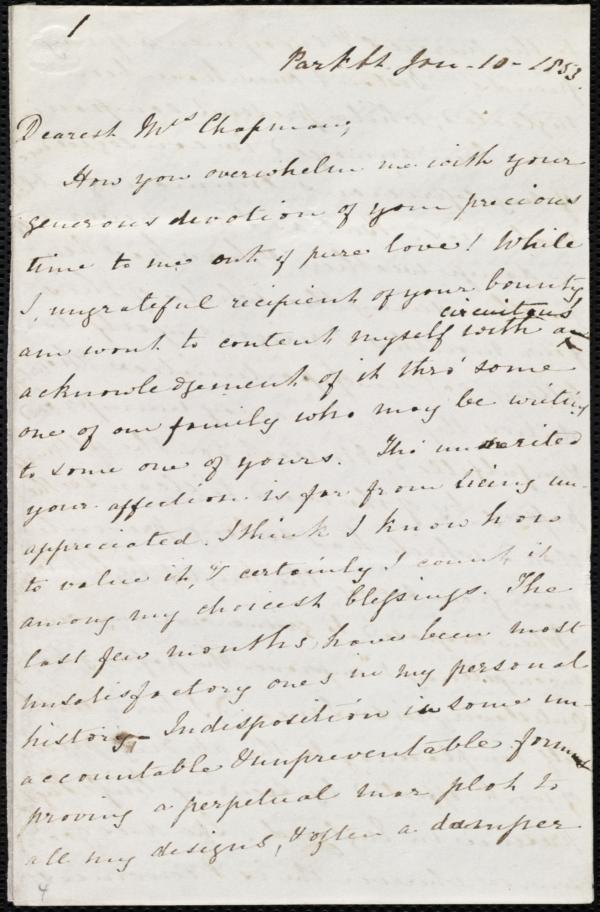 1
Park St. Jan. 10 - 1853.
Dearest Mrs Chapman,
How you overwhelm me with your
generous devotion of your precious
time to me out of pure love! While
I, ungrateful recipient of your bounty
am wont to content myself with a circuitous
acknowledgement of it thro' some
one of our family who may be writing
to some one of yours. Tho' unmerited
your affection is far from being un-
appreciated. I think I know how
to value it, & certainly I count it
among my choicest blessings. The
last few months, have been most
unsatisfactory ones in my personal
history - Indisposition in some un-
accountable & unpreventable form
proving a perpetual mar plot to
all my designs, & often a damper
4